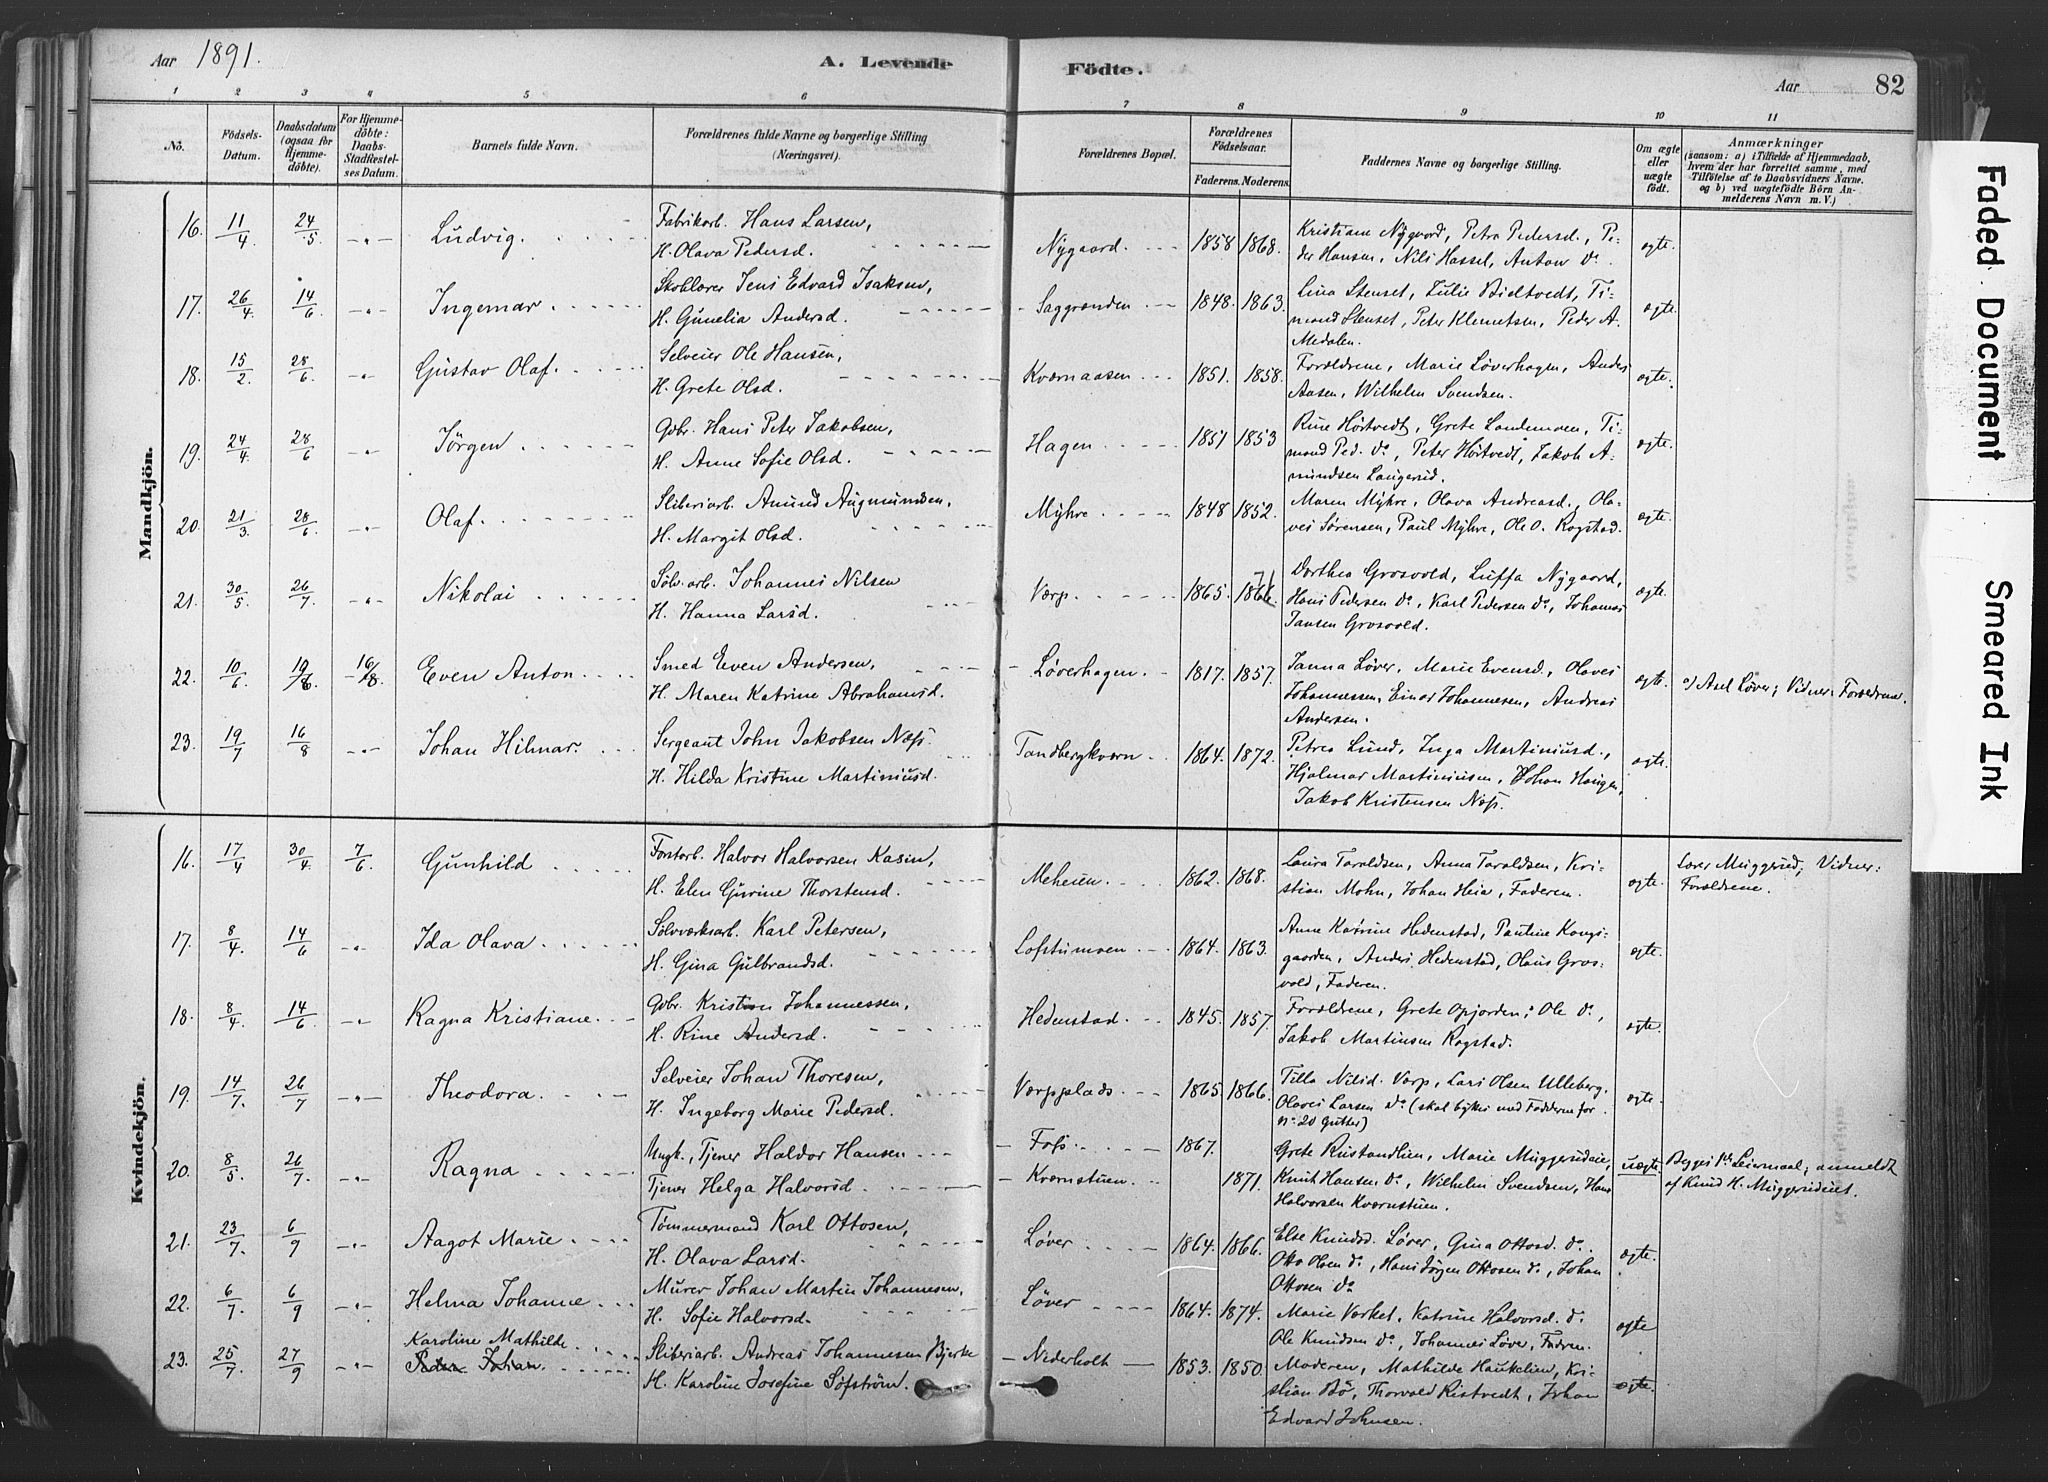 Aar 1891.
A. Levende
Födte.
Aar
82
1 2 3 4 5 6 7 8 9 10 11
No.
Födsels-
Datum.
Daabsdatum
(ogsaa for
Hjemme-
döbte).
For Hjemme-
döbte:
Daabs-
Stadfæstel-
ses Datum.
Barnets fulde Navn.
Forældrenes fulde Navne og borgerlige Stilling
(Næringsvei).
Forældrenes Bopæl.
Forældrenes
Födselsaar.
Faderens. Moderens.
Faddernes Navne og borgerlige Stilling.
Om ægte
eller
uægte
födt.
Anmærkninger
(saasom: a) i Tilfælde af Hjemmedaab,
hvem der har forrettet samme, med
Tilföielse af to Daabsvidners Navne,
og b) ved uægtefödte Börn An-
melderens Navn m. V.)
Mandkjön.
16. 11/4 24/5 -"- Ludvig. Fabrikarb. Hans Larsen,
H. Olava Pedersd. Nygaard. 1858 1868.
Kristiane Nygaard, Petra Pedersd., Pe-
der Hansen, Nils Hassel, Anton Do. ægte.
17. 26/4. 14/6 -"- Ingemar. Skolelærer Jens Edvard Isaksen,
H. Gunelia Andersd. Saggrenden 1848. 1863.
Lina Stenset, Julie Bieltvedt, Ti-
mand Stenset, Peter Klemetsen, Peder A.
Medalen. ægte.
18. 15/2. 28/6 -"- Gustav Olaf. Selveier Ole Hansen,
H. Grete Olsd. Kværnaasen 1851. 1858.
Forældrene, Marie Løverhagen, Anders
Aasen, Wilhelm Svendsen. ægte.
19. 24/4. 28/6 -"- Jörgen Gbr. Hans Peter Jakobsen,
H. Anne Sofie Olsd. Hagen 1851 1853
Rine Hörtvedt, Grete Landemoen, Ti-
mand Ped. Do, Peter Hörtvedt, Jakob A-
mundsen Langerud. ægte.
20. 21/3 28/6 -"- Olaf. Sliberiarb. Amund Augmundsen,
H. Margit Olsd. Myhre 1848 1852.
Maren Myhre, Olava Andreasd., Ola-
ves Sørensen, Paul Myhre, Ole O. Rogstad. ægte.
21. 30/5 26/7 -"- Nikolai Sölv.arb. Johannes Nilsen
H. Hanna Larsd. Værp. 1865. 1866. 71
Dorthea Grosvold, Luffa Nygaard,
Hans Pedersen Do, Karl Pedersen Do, Johannes
Jansen Grosvold. ægte.
22. 10/6 19/6 16/8 Even Anton Smed Even Andersen,
H. Maren Katrine Abrahamsd. Løverhagen. 1817. 1857.
Janna Løver, Marie Evensd., Olaves
Johannessen, Einar Johannesen, Andreas
Andersen. ægte. a) Axel Løver; Vidner: Forældrene.
23. 19/7 16/8 -"- Johan Hilmar. Sergeant John Jakobsen Næss.
H. Hilda Kristine Martiniusd. Tandbergkværn 1864. 1872.
Petrea Lund, Inga Martiniusd.,
Hjalmar Martiniusen, Johan Haugen,
Jakob Kristensen Næss. ægte.
Kvindekjön.
16. 17/4 30/4. 7/6 Gunhild Forstarb. Halvor Halvorsen Kasin,
H. Elen Gurine Thorstensd. Meheien. 1862. 1868.
Laura Taraldsen, Anna Taraldsen, Kri-
stian Mohn, Johan Heia, Faderen. ægte. Lærer Muggerud; Vidner:
Forældrene.
17. 8/4 14/6 -"- Ida Olava Sölvverksarb. Karl Petersen,
H. Gina Gulbrandsd. Loftsumoen 1864. 1863.
Anne Katrine Hedenstad, Pauline Kongs-
gaarden, Anders Hedenstad, Olaus Gros-
vold, Faderen. ægte.
18. 8/4. 14/6 -"- Ragna Kristiane. Gbr. Kristen Johannessen,
H. Rine Andersd. Hedenstad. 1845. 1857.
Forældrene, Grete Opjorden; Ole Do,
Jakob Martinsen Rogstad. ægte.
19. 14/7. 26/7 -"- Theodora. Selveier Johan Thoresen,
H. Ingeborg Marie Pedersd. Værpplads. 1865. 1866.
Tilla Nilsd. Værp, Lars Olsen Ulleberg,
Olaves Larsen Do (skal byttes med Fadderne for
No 20 Gutter) ægte.
20. 8/5. 26/7. -"- Ragna Ungk., Tjener Haldor Hansen Foss. 1867.
Tjener Helga Halvorsd. Kværnstuen. 1871.
Grete Ristandlien, Marie Muggerudeie,
Knut Hansen Do, Wilhelm Svendsen, Hans
Halvorsen Kværnstuen. uægte. Begges 1ste Leiermaal; anmeldt
af Knud H. Muggerudeiet.
21. 23/7. 6/9 -"- Aagot Marie Tømmermand Karl Ottosen,
H. Olava Larsd. Løver 1864. 1866.
Else Knudsd. Løver, Gina Ottosd. Do.
Otto Olsen Do, Hans Jörgen Ottosen Do, Johan
Ottosen Do ægte.
22. 6/7. 6/9 -"- Helma Johanne Murer Johan Martin Johannesen,
H. Sofie Halvorsd. Løver 1864. 1874.
Marie Værket, Katrine Halvorsd. Do
Ole Knudsen Do, Johannes Løver, Faderen. ægte
23. 25/7. 27/9 -"- Karoline Mathilde
Peder Johan. Sliberiarb. Andreas Johannesen Bjerke
H. Karoline Josefine Söfström. Nederholt 1853. 1850.
Moderen, Mathilde Haukelien, Kri-
stian Bö, Thorvald Ristvedt, Johan
Edvard Johnsen. ægte.
Faded Document
Smeared Ink